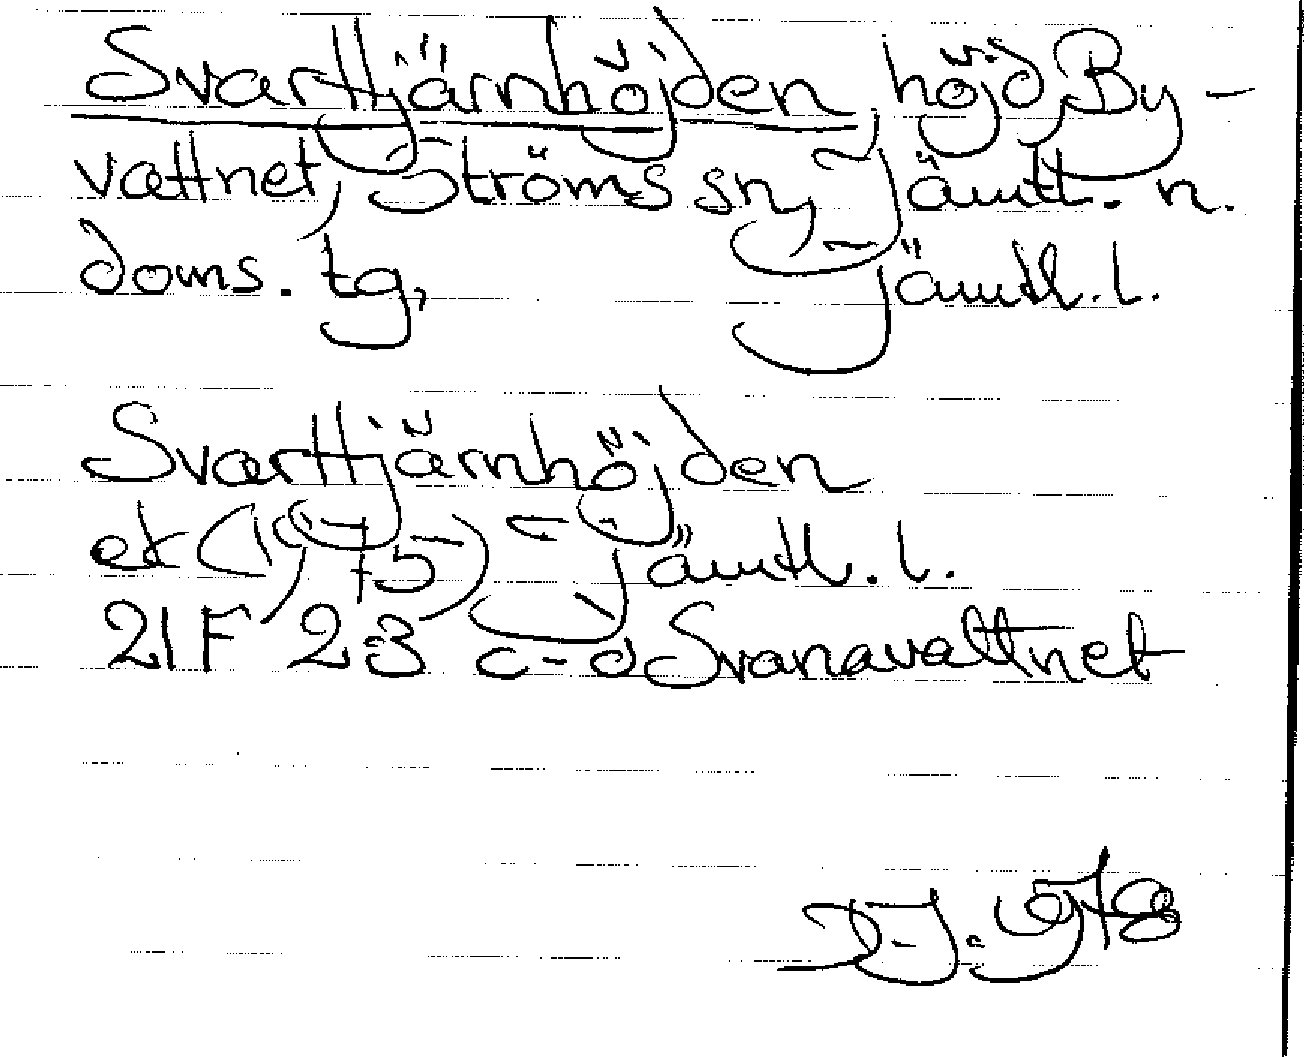 Svarttjärnhöjden, höjd, By-
vattnet, Ströms sn, Jämtl. n.
doms. tg, Jämtl. l.
Svarttjärnhöjden
ek (19 75) Jämtl. l.
21F 23 c-d Svanavattnet
1978